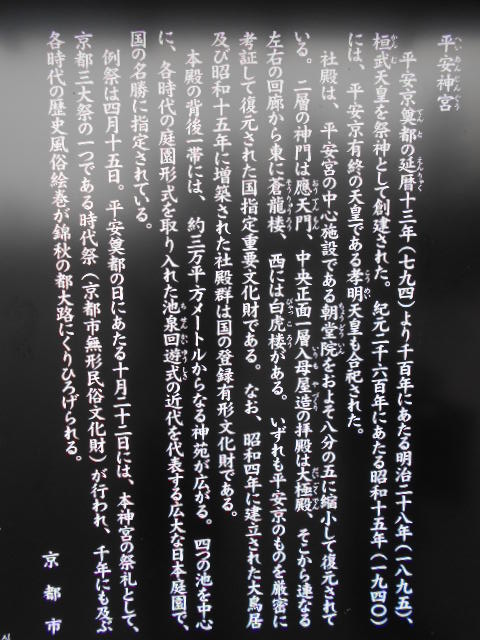 平安神宮
へいあんじんぐう
平安京奠都の延暦十三年(七九四)より千百年にあたる明治二十八年(一八九五)、
桓武天皇を祭神として創建された。紀元二千六百年にあたる昭和十五年(一九四〇)
には、平安京有終の天皇である孝明天皇も合祀された。
社殿は、平安宮の中心施設である朝堂院をおよそ八分の五に縮小して復元されて
いる。二層の神門は應天門、中央正面一層入母屋造の拝殿は大極殿、そこから連なる
左右の回廊から東に蒼龍楼、西には白虎楼がある。いずれも平安京のものを厳密に
考証して復元された国指定重要文化財である。なお、昭和四年に建立された大鳥居
及び昭和十五年に増築された社殿群は国の登録有形文化財である。
本殿の背後一帯には、約三万平方メートルからなる神苑が広がる。四つの池を中心
に、各時代の庭園形式を取り入れた池泉回遊式の近代を代表する広大な日本庭園で、
国の名勝に指定されている。
例祭は四月十五日。平安奠都の日にあたる十月二十二日には、本神宮の祭礼として、
京都三大祭の一つである時代祭(京都市無形民俗文化財)が行われ、千年にも及ぶ
各時代の歴史風俗絵巻が錦秋の都大路にくりひろげられる。
京都市